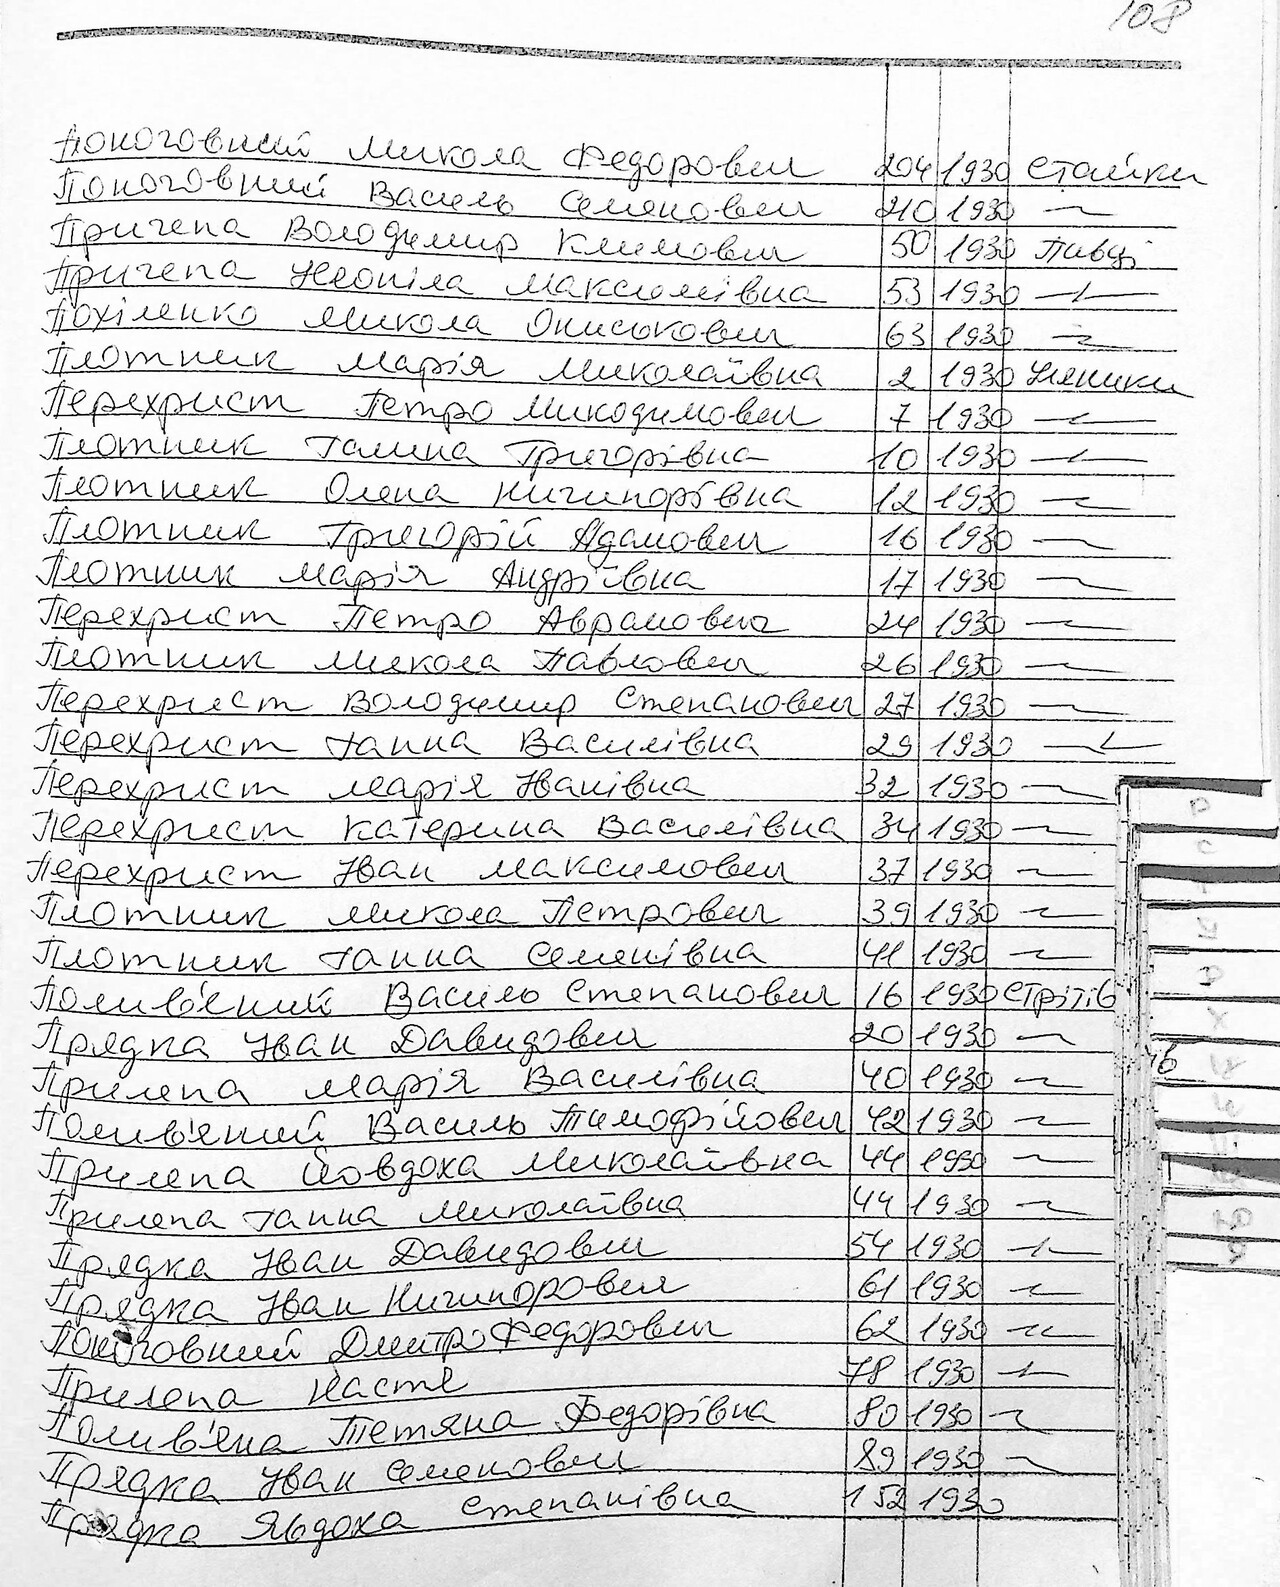 108
Поноговний Микола Федорович 204 1930 Стайки
Поноговний Василь Семенович 210 1930 —"—
Причепа Володимир Климович 50 1930 Пивці
Причепа Неоніла Максимівна 53 1930 —"—
Похіленко Микола Онискович 63 1930 —"—
Плотник Марія Миколаївна 2 1930 Уляники
Перехрист Петро Микодимович 7 1930 —"—
Плотник Галина Григорівна 10 1930 —"—
Плотник Олена Ничипорівна 12 1930 —"—
Плотник Григорій Адамович 16 1930 —"—
Плотник Марія Андріївна 17 1930 —"—
Перехрист Петро Аврамович 24 1930 —"—
Плотник Микола Павлович 26 1930 —"—
Перехрист Володимир Степанович 27 1930 —"—
Перехрист Ганна Василівна 29 1930 —"—
Перехрист Марія Іванівна 32 1930 —"—
Перехрист Катерина Василівна 34 1930 —"—
Перехрист Іван Максимович 37 1930 —"—
Плотник Микола Петрович 39 1930 —"—
Плотник Ганна Семенівна 41 1930 —"—
Полив'яний Василь Степанович 16 1930 Стрітів
Прядка Іван Давидович 20 1930 —"—
Прилепа Марія Василівна 40 1930 —"—
Полив'яний Василь Тимофійович 42 1930 —"—
Прилепа Йовдоха Миколаївна 44 1930 —"—
Прилепа Ганна Миколаївна 44 1930 —"—
Прядка Іван Давидович 54 1930 —"—
Прядка Іван Ничипорович 61 1930 —"—
Поноговний Дмитро Федорович 62 1930 —"—
Прилепа Настя 78 1930 —"—
Полив'яна Тетяна Федорівна 80 1930 —"—
Прядка Іван Семенович 89 1930 —"—
Прядка Явдоха Степанівна 152 1930